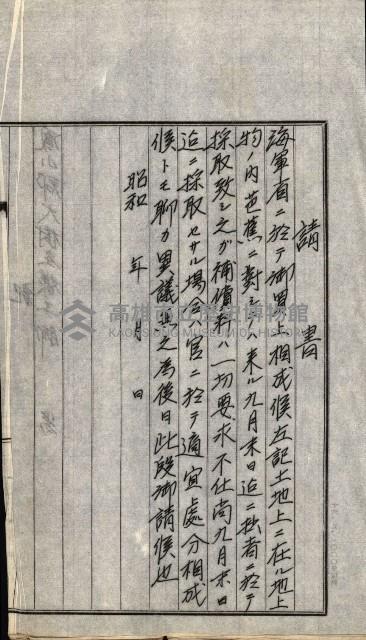 請書
海軍省ニ於テ御買上相成候左記土地上ニ在ル地上
物ノ内芭蕉ニ對シ 来ル九月末日迄ニ拙者ニ於テ
採取致シ之ガ補償料ハ一切要求不仕尚九月末日
迄ニ採取セサル場合官ニ於テ適宜處分相成
候トモ聊カ異議無之為後日此段御請候也
昭和 年 月 日
高雄市立歷史博物館
KAOHSIUNG MUSEUM OF HISTORY